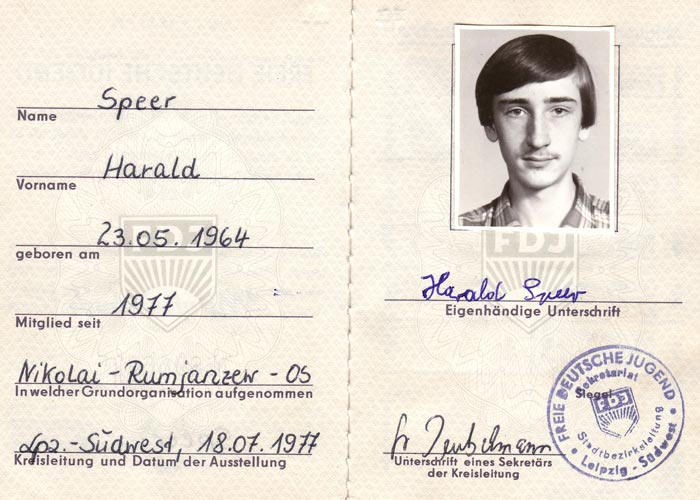 Speer
Name
Harald
Vorname
23.05.1964
geboren am
1977
Mitglied seit
Nikolai-Rumjanzew-OS
In welcher Grundorganisation aufgenommen
Lpz.-Südwest, 18.07.1977
Kreisleitung und Datum der Ausstellung
FDJ
FDJ
Harald Speer
Eigenhändige Unterschrift
Siegel
FREIE DEUTSCHE JUGEND
Sekretariat
FDJ
Stadtbezirksleitung
Leipzig - Südwest
Unterschrift eines Sekretärs
der Kreisleitung